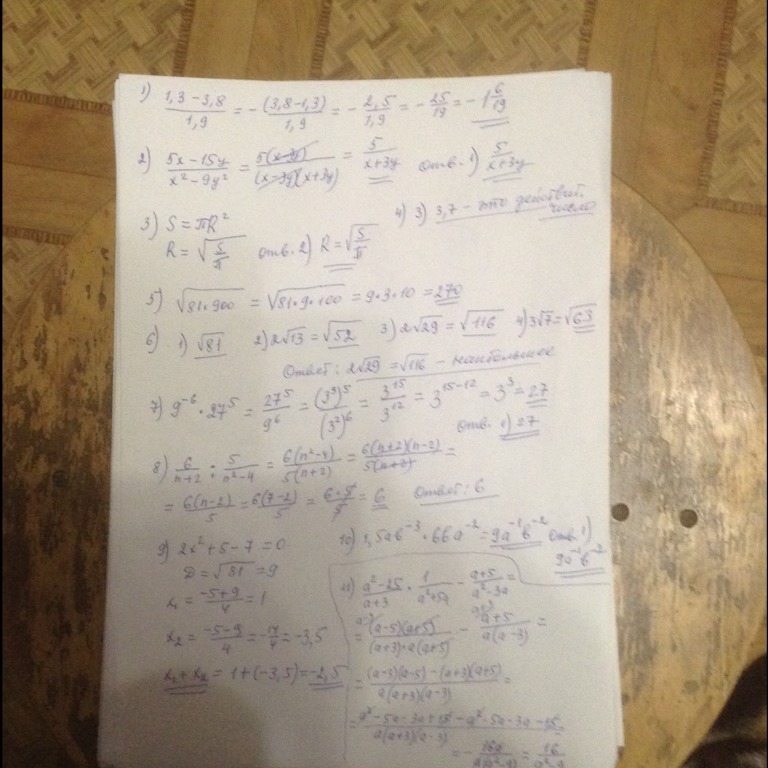 1) (1,3 − 3,8)/1,9 = −(3,8−1,3)/1,9 = − 2,5/1,9 = − 25/19 = −1 6/19
2) (5x − 15y)/(x² − 9y²) = 5(x−3y)/((x−3y)(x+3y)) = 5/(x+3y) отв. 1) 5/(x+3y)
3) S = πR²
R = √(S/π) отв. 2) R = √(S/π)
4) 3) 3,7 – это действит. число
5) √(81·900) = √(81·9·100) = 9·3·10 = 270
6) 1) √81 2) 2√13 = √52 3) 2√29 = √116 4) 3√7 = √63
Ответ: 2√29 = √116 – наибольшее
7) 9⁻⁶ · 27⁵ = 27⁵/9⁶ = (3³)⁵/(3²)⁶ = 3¹⁵/3¹² = 3¹⁵⁻¹² = 3³ = 27
отв. 1) 27
8) 6/(n+2) : 5/(n²−4) = 6(n²−4)/(5(n+2)) = 6(n+2)(n−2)/(5(n+2)) =
= 6(n−2)/5 = 6(7−2)/5 = 6·5/5 = 6 Ответ: 6
9) 2x² + 5 − 7 = 0
D = √81 = 9
x₁ = (−5+9)/4 = 1
x₂ = (−5−9)/4 = −14/4 = −3,5
x₁ + x₂ = 1 + (−3,5) = −2,5
10) 1,5ab⁻³ · 6ba⁻² = 9a⁻¹b⁻² Отв. 1)
9a⁻¹b⁻²
11) (a²−25)/(a+3) · 1/(a²+5a) − (a+5)/(a²−3a) =
= (a−5)(a+5)/((a+3)·a(a+5)) − (a+5)/(a(a−3)) =
= ((a−3)(a−5) − (a+3)(a+5))/(a(a+3)(a−3)) =
= (a² − 5a − 3a + 15 − a² − 5a − 3a − 15)/(a(a+3)(a−3)) =
= − 16a/(a(a²−9)) = 16/(a²−9)